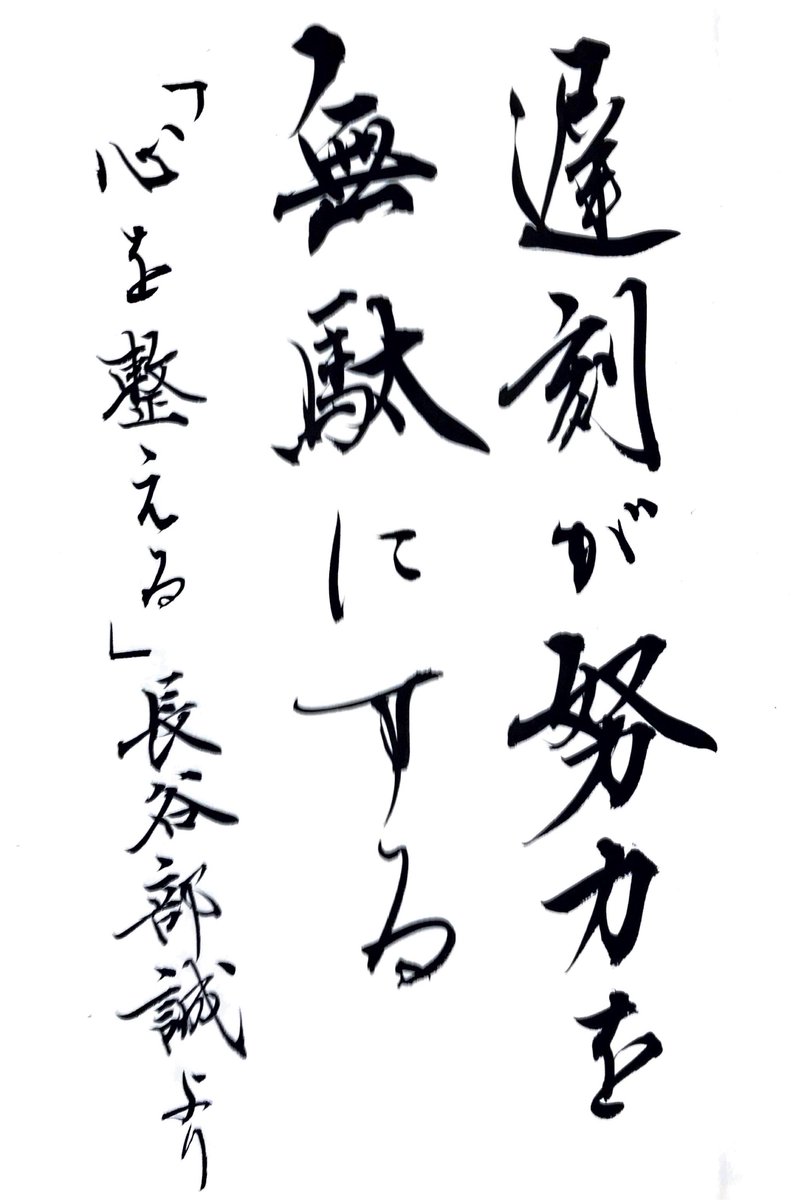 遅刻が努力を
無駄にする
「心を整える」長谷部誠より